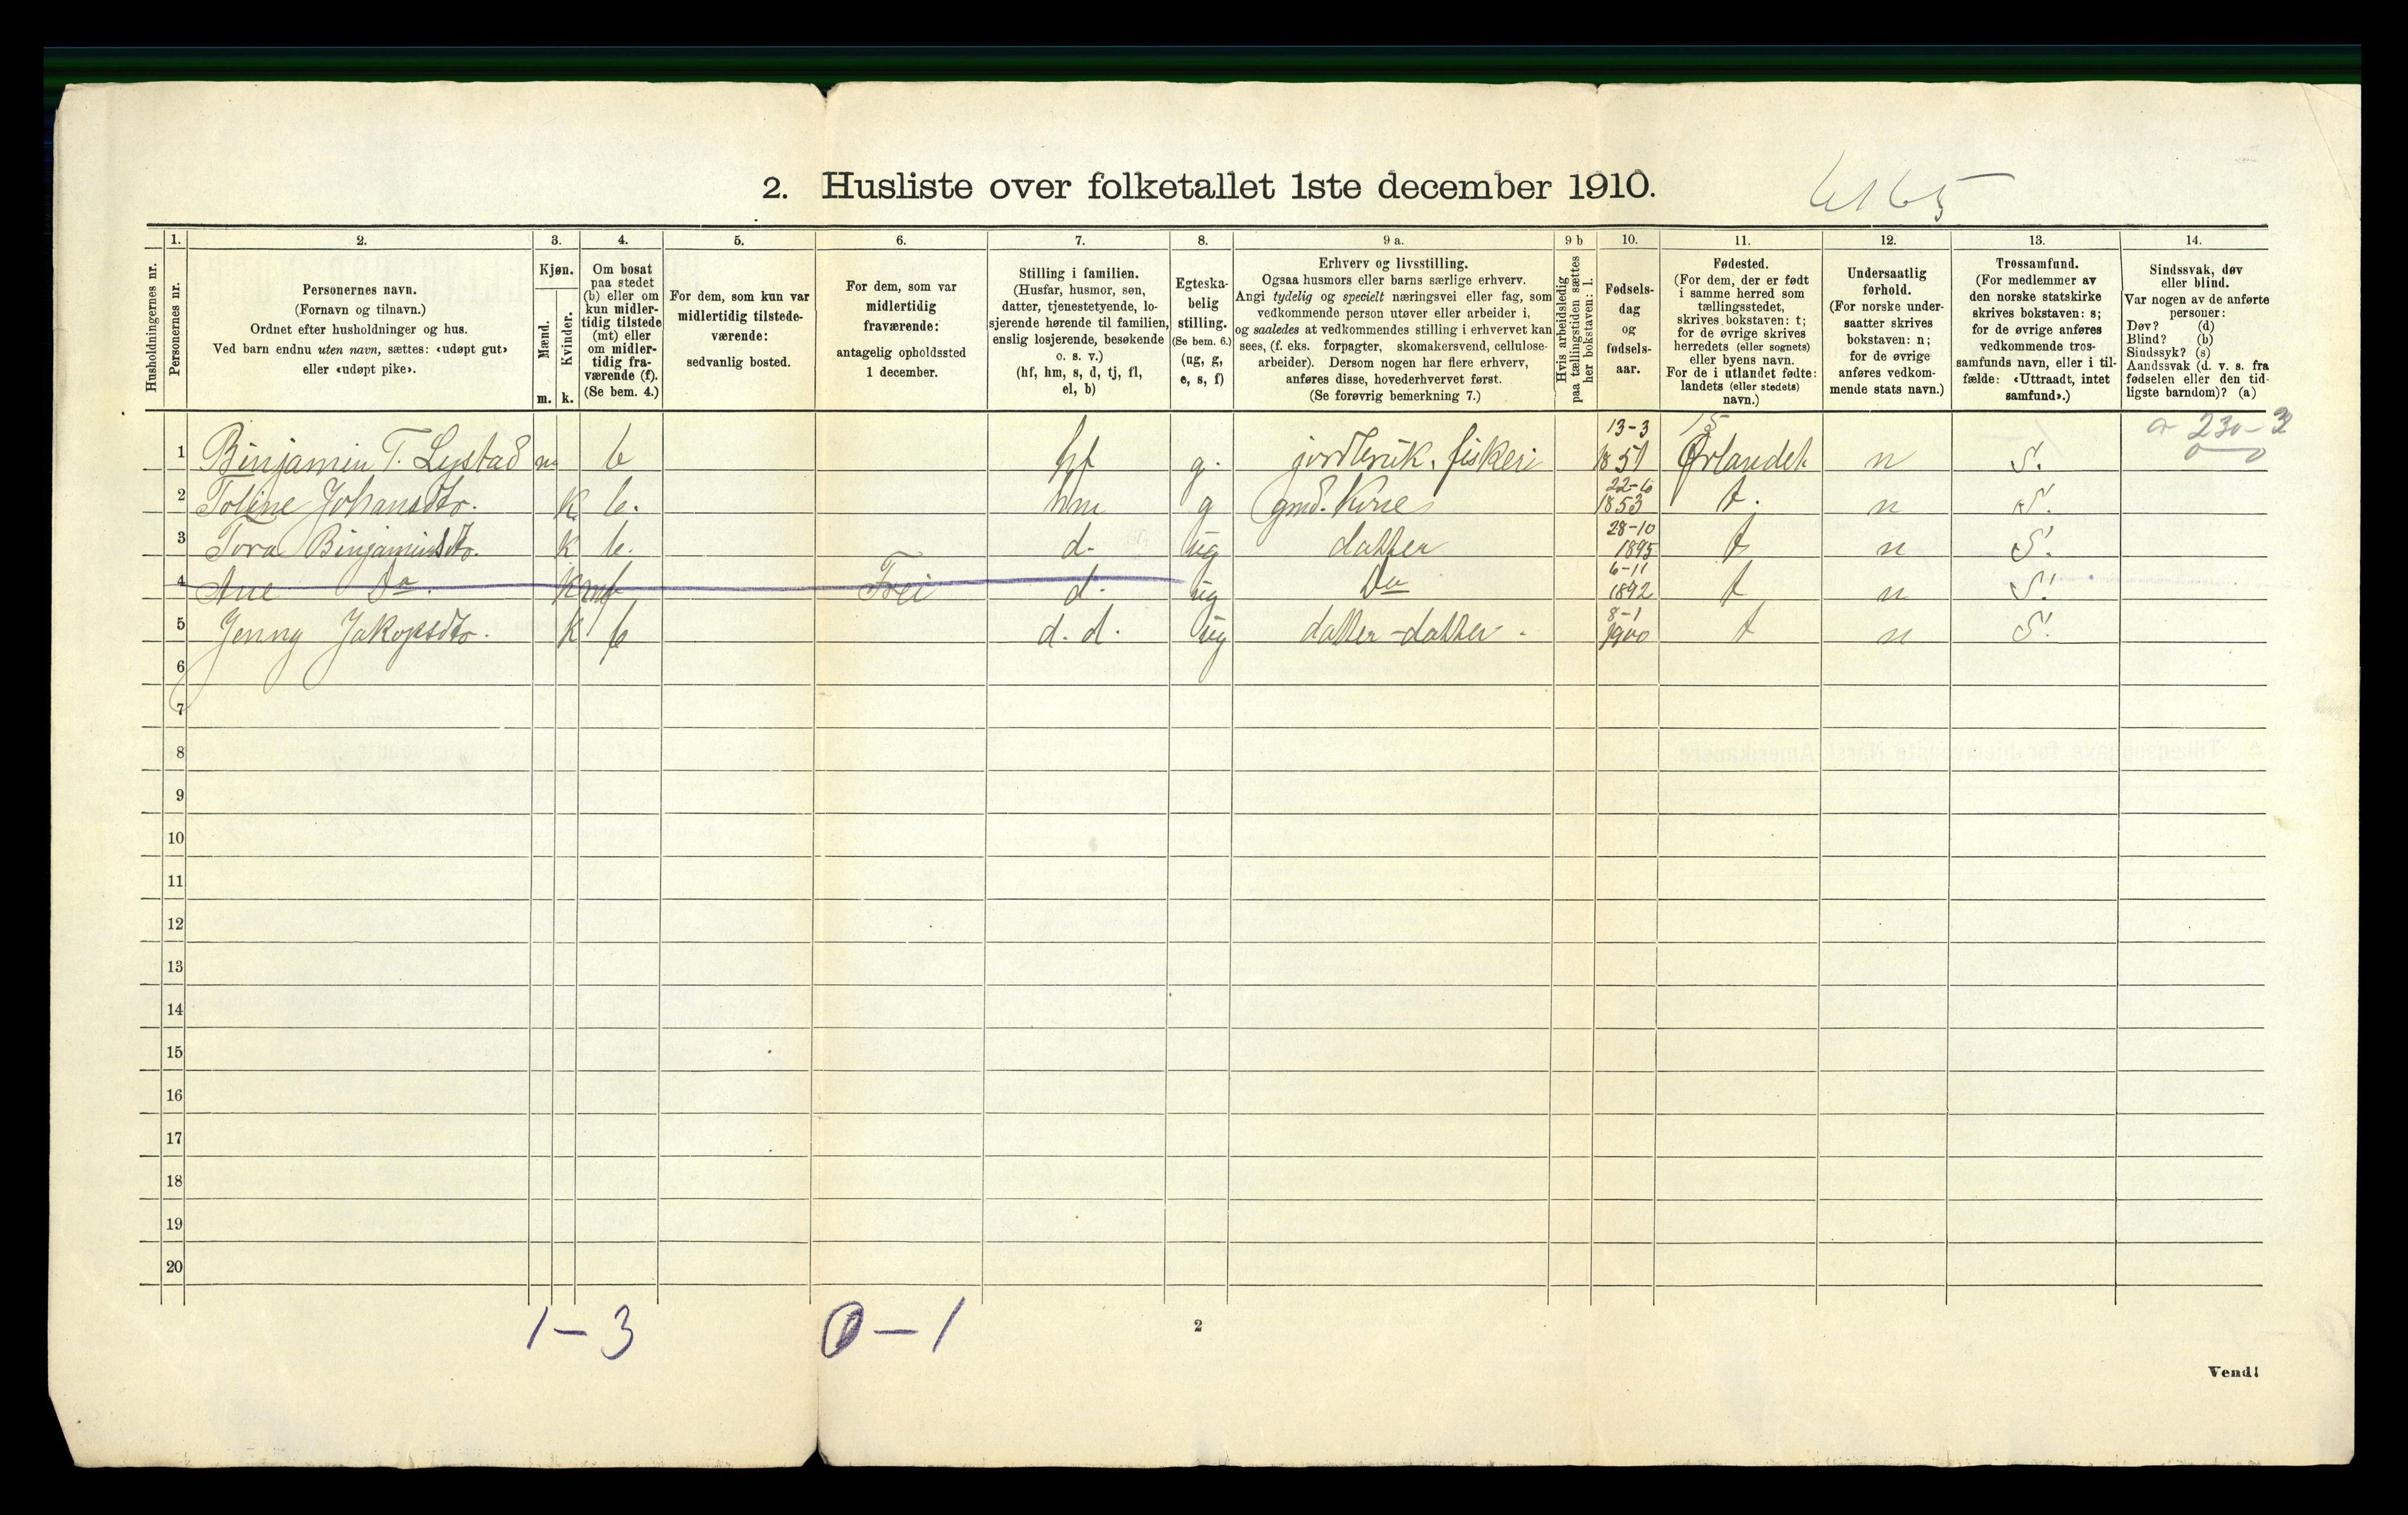 2. Husliste over folketallet 1ste december 1910.
1. 2. 3. 4. 5. 6. 7. 8. 9 a. 9 b 10. 11. 12. 13. 14.
Husholdningernes nr.
Personernes nr.
Personernes navn.
(Fornavn og tilnavn.)
Ordnet efter husholdninger og hus.
Ved barn endnu uten navn, sættes: «udøpt gut»
eller «udøpt pike».
Kjøn.
Mænd.
Kvinder.
m. k.
Om bosat
paa stedet
(b) eller om
kun midler-
tidig tilstede
(mt) eller
om midler-
tidig fra-
værende (f).
(Se bem. 4.)
For dem, som kun var
midlertidig tilstede-
værende:
sedvanlig bosted.
For dem, som var
midlertidig
fraværende:
antagelig opholdssted
1 december.
Stilling i familien.
(Husfar, husmor, søn,
datter, tjenestetyende, lo-
sjerende hørende til familien,
enslig losjerende, besøkende
o. s. v.)
(hf, hm, s, d, tj, fl,
el, b)
Egteska-
belig
stilling.
(Se bem. 6.)
(ug, g,
e, s, f)
Erhverv og livsstilling.
Ogsaa husmors eller barns særlige erhverv.
Angi tydelig og specielt næringsvei eller fag, som
vedkommende person utøver eller arbeider i,
og saaledes at vedkommendes stilling i erhvervet kan
sees, (f. eks. forpagter, skomakersvend, cellulose-
arbeider). Dersom nogen har flere erhverv,
anføres disse, hovederhvervet først.
(Se forøvrig bemerkning 7.)
Hvis arbeidsledig
paa tællingstiden sættes
her bokstaven: l.
Fødsels-
dag
og
fødsels-
aar.
Fødested.
(For dem, der er født
i samme herred som
tællingsstedet,
skrives bokstaven: t;
for de øvrige skrives
herredets (eller sognets)
eller byens navn.
For de i utlandet fødte:
landets (eller stedets)
navn.)
Undersaatlig
forhold.
(For norske under-
saatter skrives
bokstaven: n;
for de øvrige
anføres vedkom-
mende stats navn.)
Trossamfund.
(For medlemmer av
den norske statskirke
skrives bokstaven: s;
for de øvrige anføres
vedkommende tros-
samfunds navn, eller i til-
fælde: «Uttraadt, intet
samfund».)
Sindssvak, døv
eller blind.
Var nogen av de anførte
personer:
Døv? (d)
Blind? (b)
Sindssyk? (s)
Aandssvak (d. v. s. fra
fødselen eller den tid-
ligste barndom)? (a)
1 Binjamin T. Lystad m b hf g. jordbruk. fiskeri 13-3 1851 15 Ørlandet n S. 230-2
2 Toline Johansdtr. k b. hm g gmd. Kone 22-6 1853 t. n S.
3 Tora Binjaminsdtr. k b. d. ug datter 28-10 1895 t n S.
4 Ane Do. k Frei d. ug Do 6-11 1892 t n S.
5 Jenny Jakopsdtr. k b d. d. ug datter-datter. 8-1 1900 t n S.
6
7
8
9
10
11
12
13
14
15
16
17
18
19
20
1-3 0-1
2
Vend!